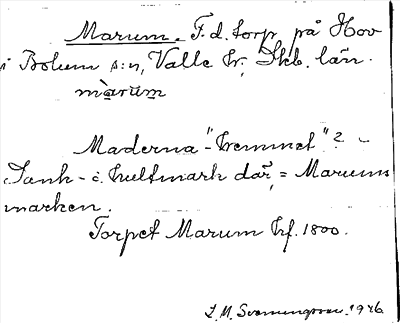 Marum. F.d. torp på Hov
i Bolum s:n, Valle hr, Skb. län.
màrum
Maderna "-hemmet"? -
Sank- o. kultmark där = Marums
marken.
Torpet Marum krf. 1800.
L. M. Svenungsson. 1946.